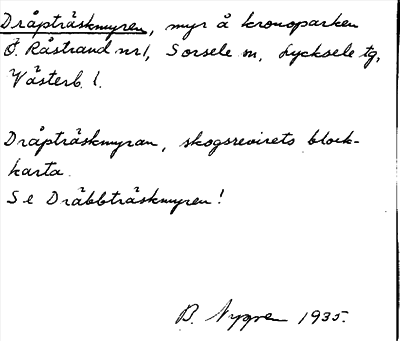 Dråpträskmyren, myr å kronoparken
Ö. Råstrand nr1, Sorsele sn, Lycksele tg,
Västerb. l.
Dråpträskmyran, skogsrevirets block-
karta.
Se Dräbbträskmyren!
B. Nygren 1935.